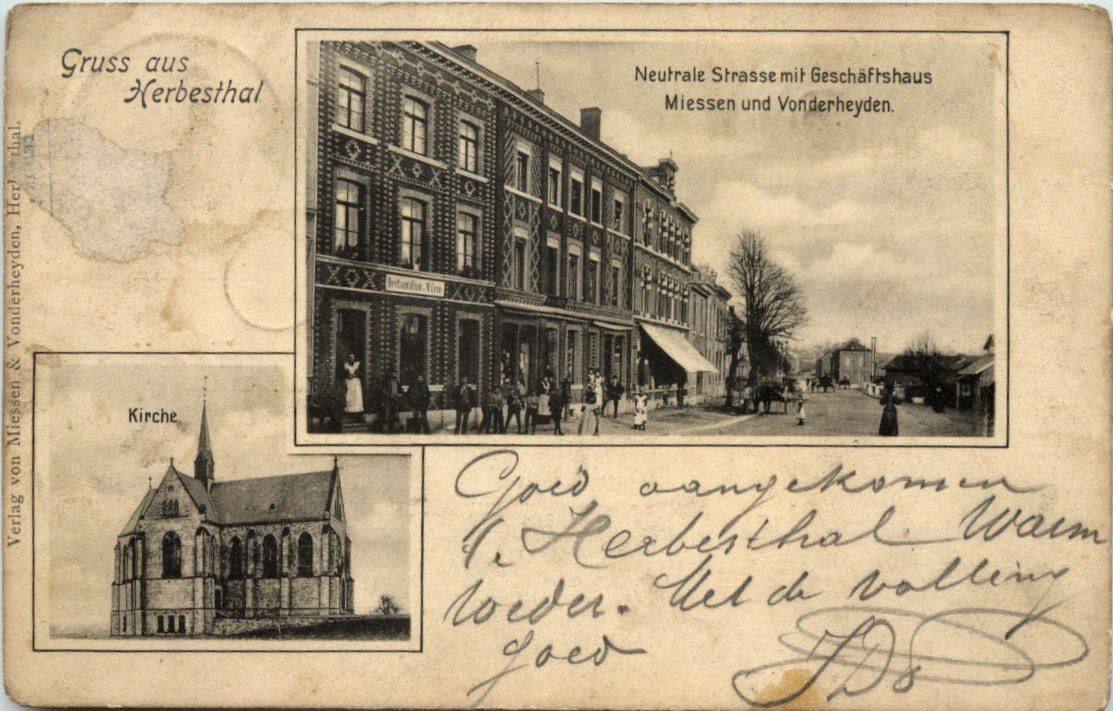 Gruss aus
Herbesthal
Neutrale Strasse mit Geschäftshaus
Miessen und Vonderheyden.
Restauration
Kirche.
Verlag von Miessen & Vonderheyden, Her thal.
Goed aangekomen
Herbesthal Warm
weder. Met de
goed